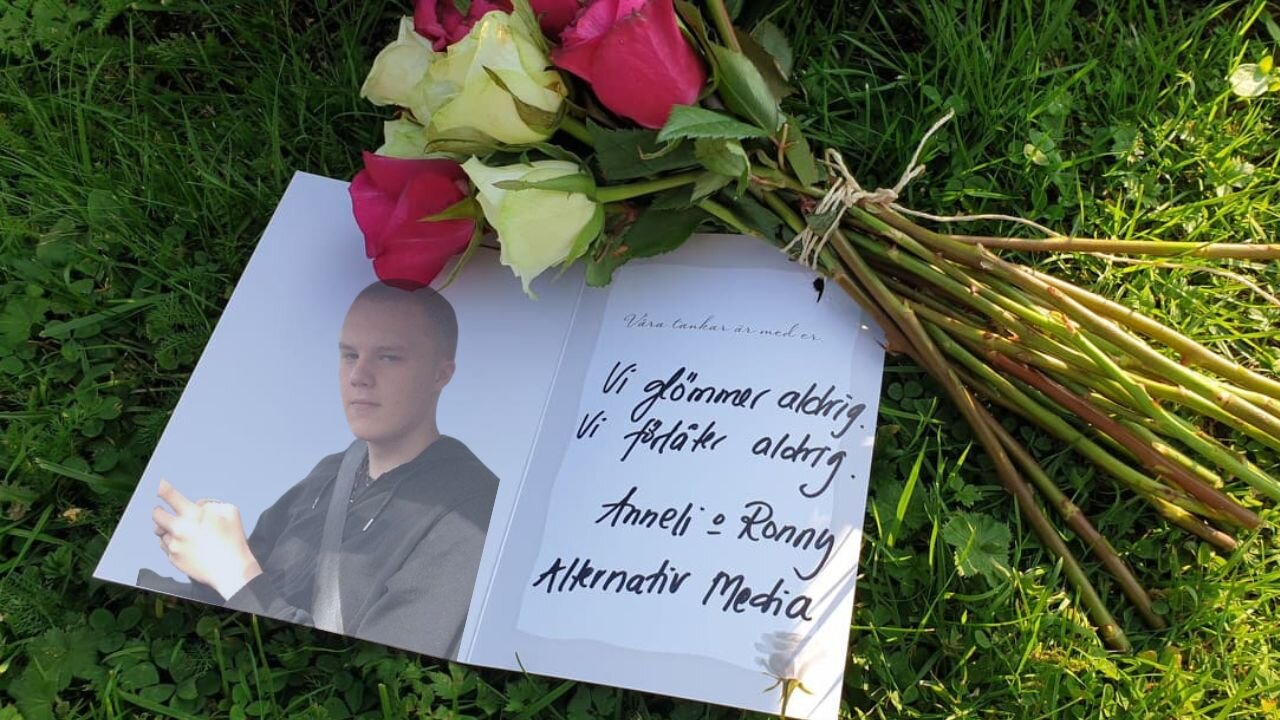 Våra tankar är med er.
Vi glömmer aldrig.
Vi förlåter aldrig.
Anneli o Ronny
Alternativ Media